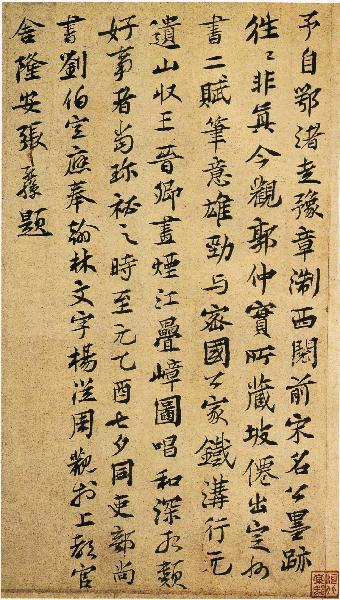 予自鄂渚走豫章淛西閱前宋名公墨跡
往〻非真今觀郭仲實所藏坡僊出定州
書二賦筆意雄勁与密國公家鐵溝行元
遺山収王晉卿畫煙江疊嶂圖唱和深相類
好事者當珍祕之時至元乙酉七夕同吏部尚
書劉伯宣應奉翰林文字楊從周觀於上都官
舍隆安張孔孫題